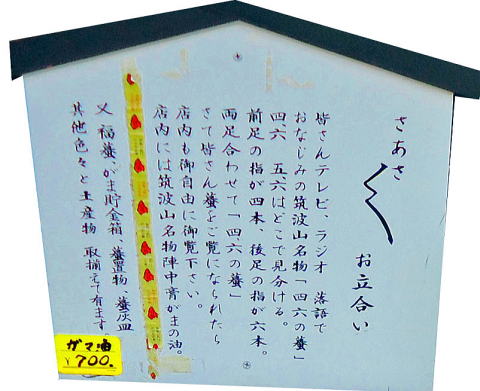 さあさ〳〵お立合い
皆さんテレビ、ラジオ 落語で
おなじみの筑波山名物「四六の蟇」
四六 五、六はどこで見分ける。
前足の指が四本、後足の指が六本。
両足合わせて「四六の蟇」
さて皆さん蟇をご覧になられたら
店内も御自由に御覧下さい。
店内には筑波山名物陣中膏がまの油。
又 福蟇がま貯金箱、蟇置物、蟇灰皿
其他色々と土産物 取揃えて有ます。
ガマ油
¥700.